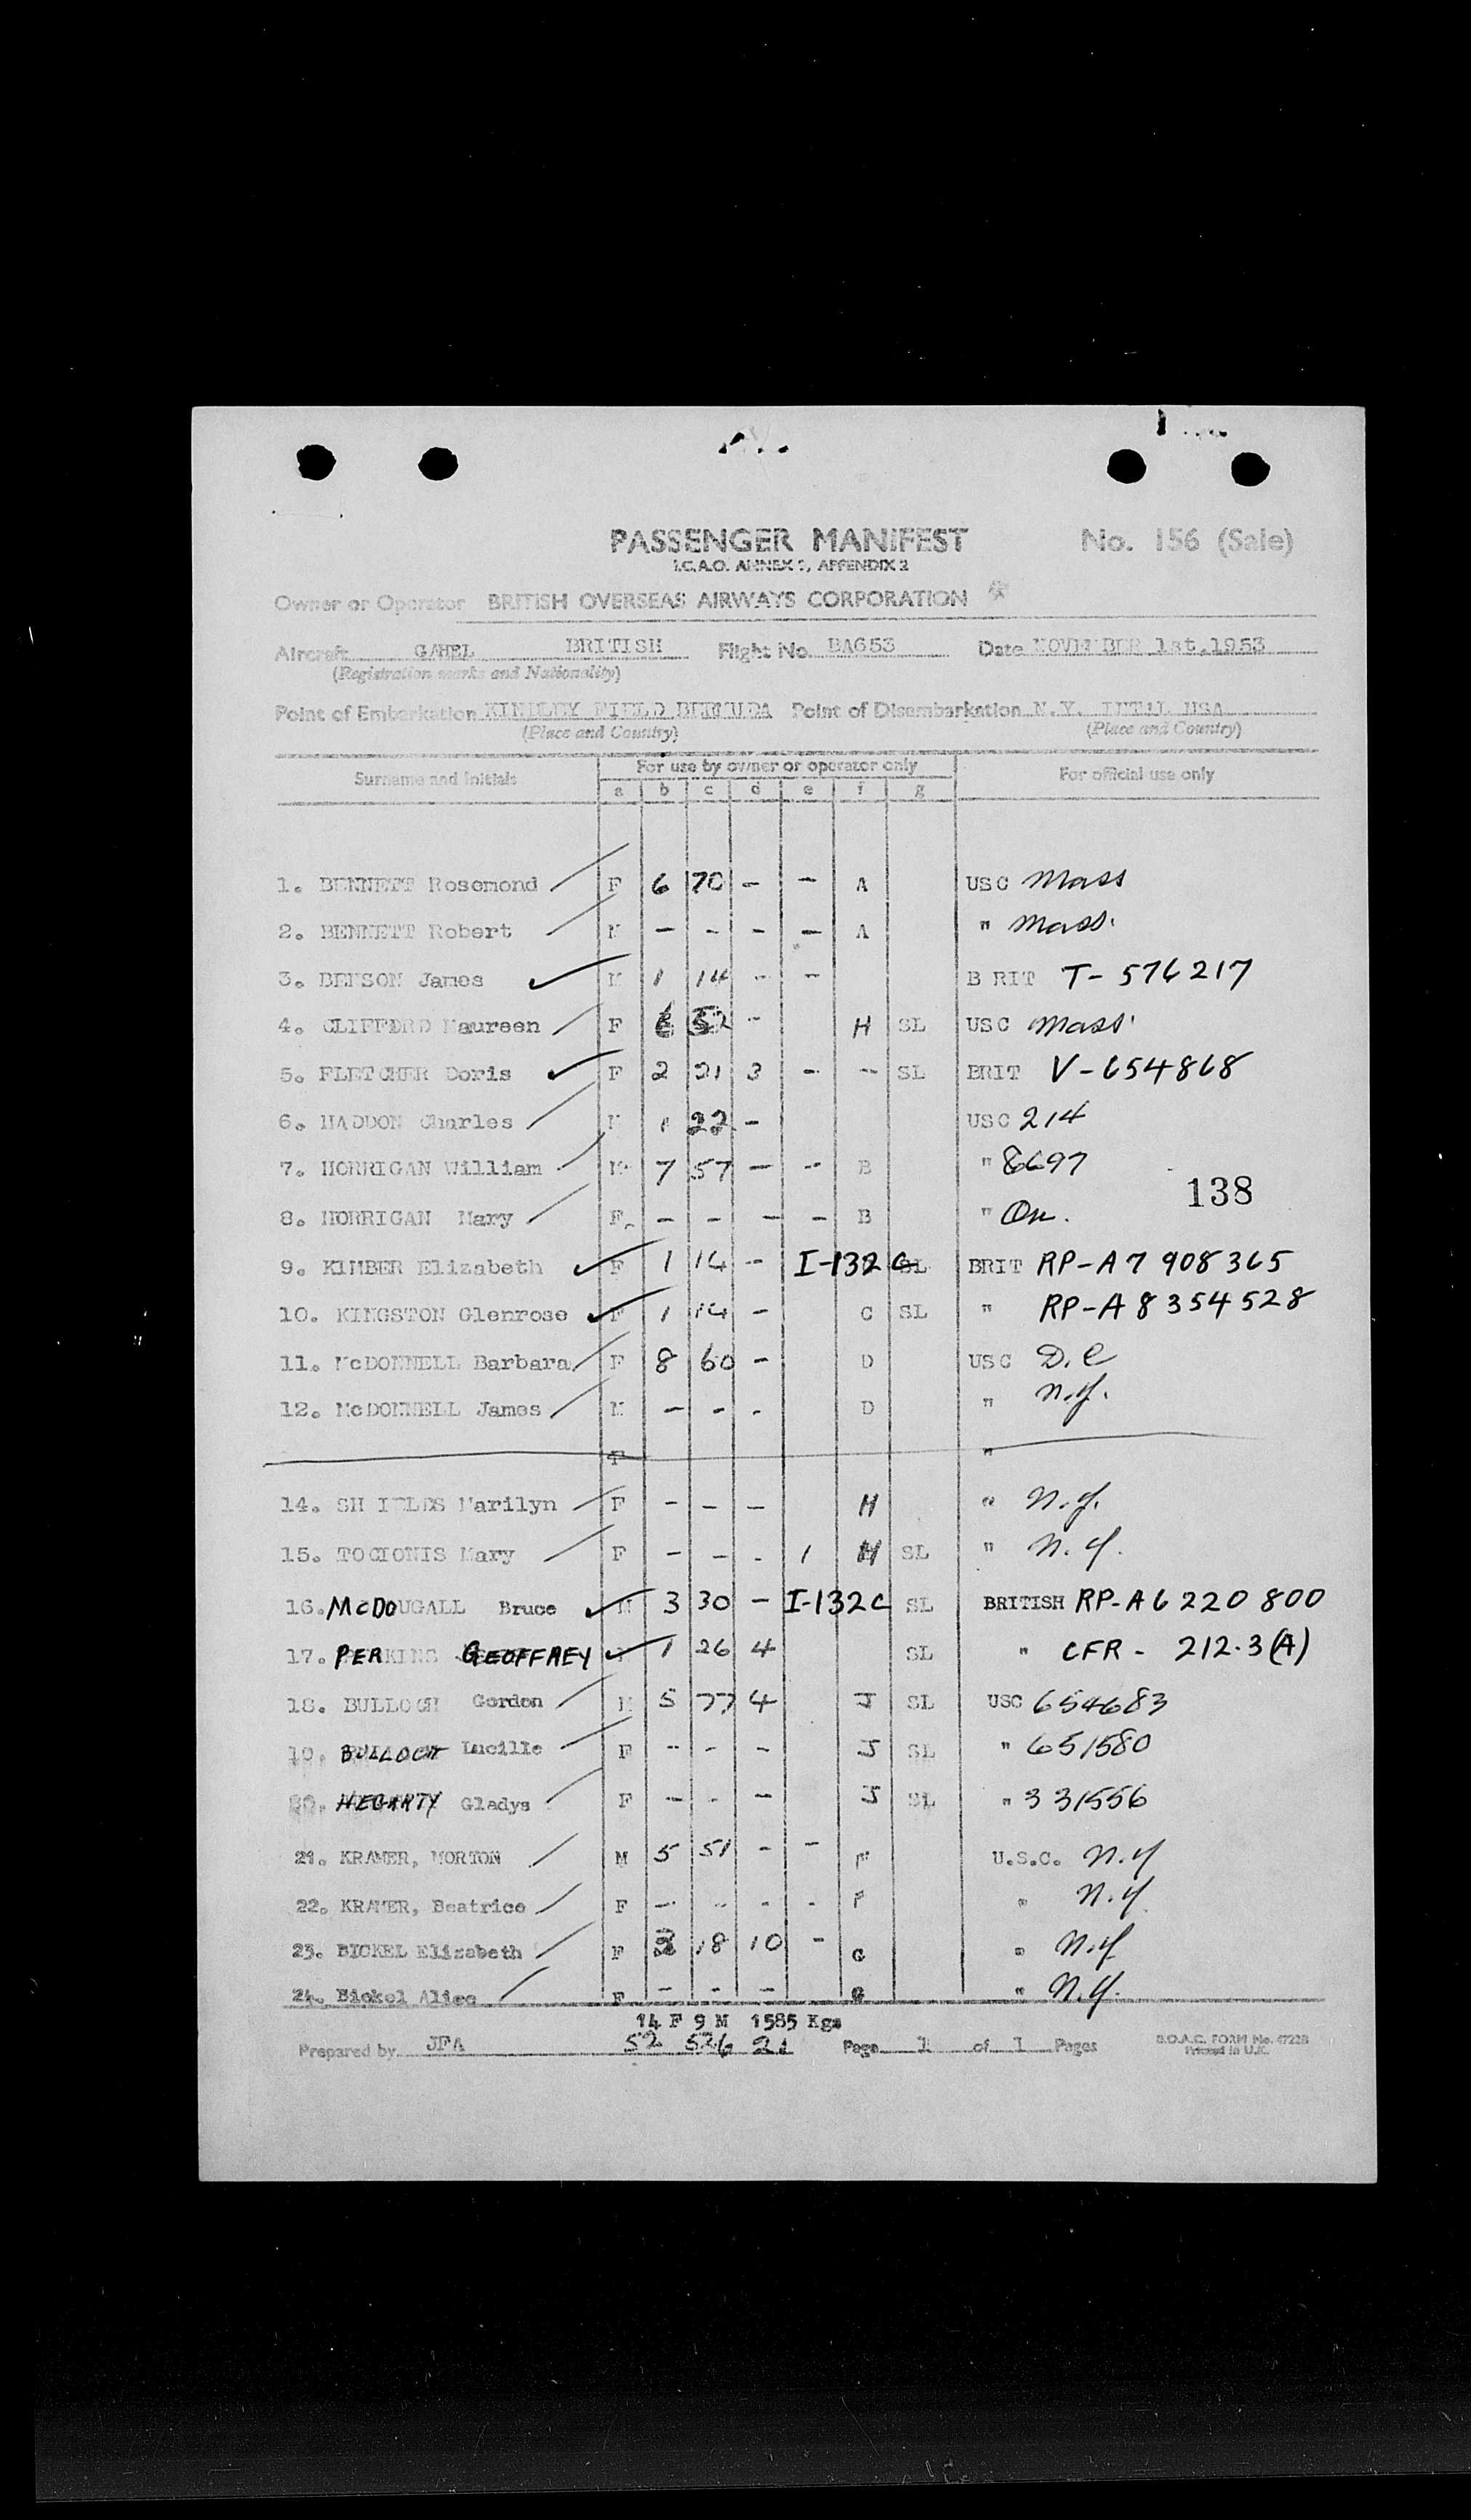 PASSENGER MANIFEST No. 156 (Sale)
I.C.A.O. ANNEX 9, APPENDIX 2
Owner or Operator BRITISH OVERSEAS AIRWAYS CORPORATION
Aircraft GAHEL BRITISH Flight No. BA653 Date NOVEMBER 1st.1953
(Registration marks and Nationality)
Point of Embarkation KINDLEY FIELD BERMUDA Point of Disembarkation N.Y. INT'L USA
(Place and Country) (Place and Country)
Surname and initials For use by owner or operator only For official use only
a b c d e f g
1. BENNETT Rosemond F 6 70 - - A USC Mass
2. BENNETT Robert M - - - - A " Mass.
3. BENSON James M 1 14 - - B RIT T-576217
4. CLIFFORD Maureen F 6 52 - H SL USC Mass.
5. FLETCHER Doris F 2 21 3 - - SL BRIT V-654868
6. HADDON Charles M 1 22 - USC 214
7. HORRIGAN William M 7 57 - - B " 8697
138
8. HORRIGAN Mary F - - - - B " On.
9. KIMBER Elizabeth F 1 14 - I-132C SL BRIT RP-A7 908 365
10. KINGSTON Glenrose F 1 14 - C SL " RP-A8354528
11. McDONNELL Barbara F 8 60 - D USC D.C
12. McDONNELL James M - - - D " N.Y.
F "
14. SHIELDS Marilyn F - - - H " N.Y.
15. TOCIONIS Mary F - - - 1 H SL " N.Y.
16. McDOUGALL Bruce M 3 30 - I-132C SL BRITISH RP-A6 220 800
17. PERKINS GEOFFREY 1 26 4 SL " CFR - 212.3(A)
18. BULLOCH Gordon M 5 77 4 J SL USC 654683
19. BULLOCH Lucille F - - - J SL " 651580
20. HEGARTY Gladys F - - - J SL " 331556
21. KRAMER, MORTON M 5 51 - - F U.S.C. N.Y
22. KRAMER, Beatrice F - - - - F " N.Y
23. BICKEL Elizabeth F 2 18 10 - G " N.Y
24. Bickel Alice F - - - G " N.Y.
14 F 9 M 1585 Kgs
Prepared by JFA 52 526 21 Page 1 of 1 Pages
B.O.A.C. FORM No. 4722B
Printed in U.K.